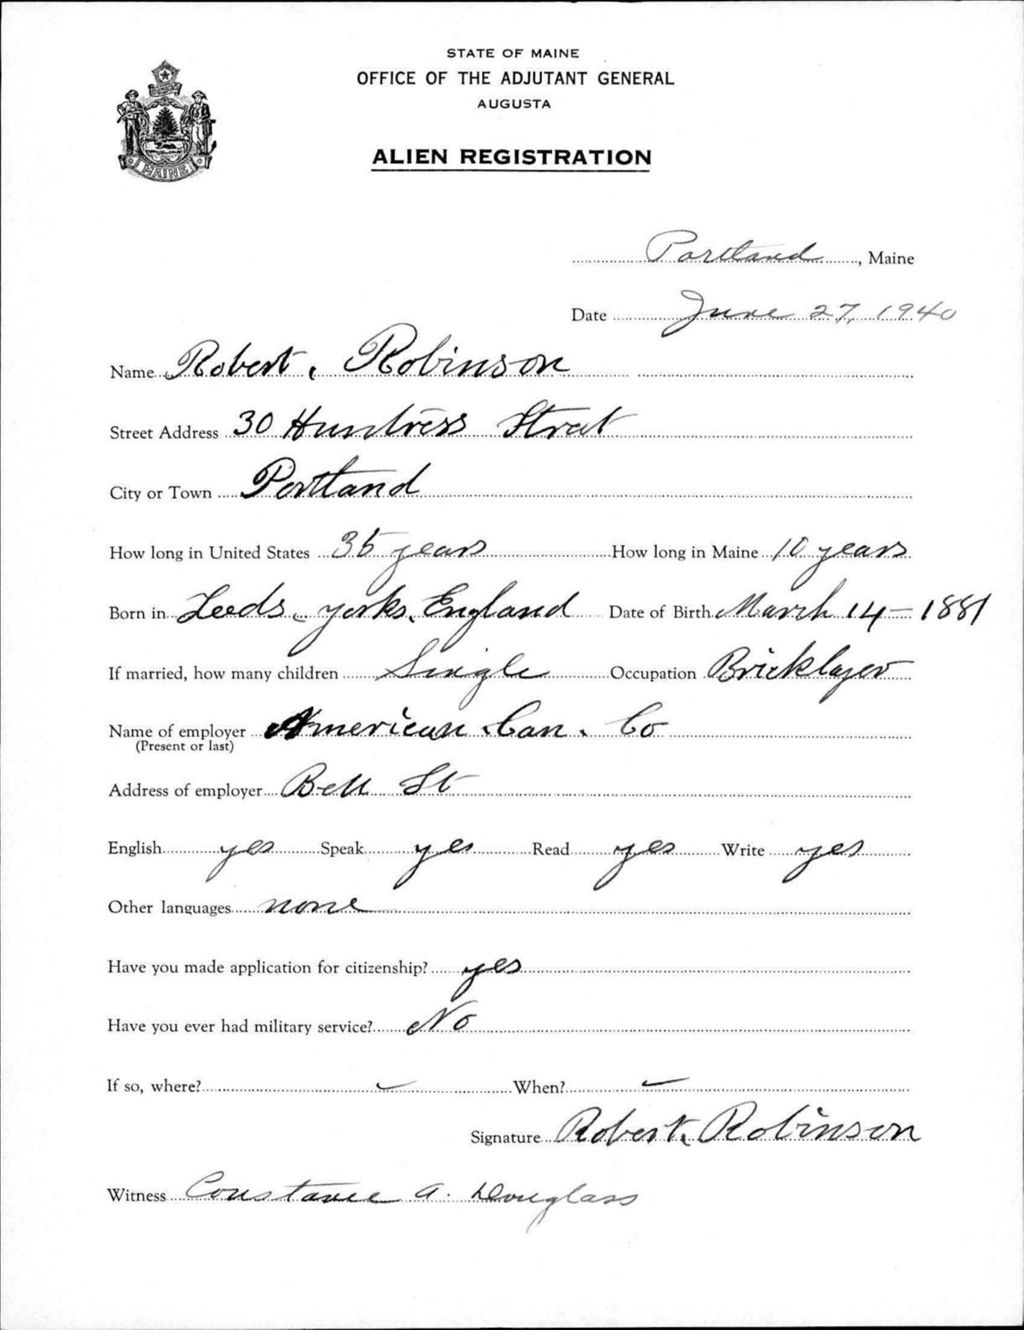 STATE OF MAINE
OFFICE OF THE ADJUTANT GENERAL
AUGUSTA
ALIEN REGISTRATION
MAINE
Portland, Maine
Date June 27, 1940
Name Robert. Robinson
Street Address 30 Huntress Street
City or Town Portland
How long in United States years How long in Maine 10 years
Born in Leeds, yorks, England Date of Birth March 14-1881
If married, how many children Single Occupation Bricklayer
Name of employer American Can. Co
(Present or last)
Address of employer Bell St
English yes Speak yes Read yes Write yes
Other languages none
Have you made application for citizenship? yes
Have you ever had military service? No
If so, where? When?
Signature Robert. Robinson
Witness Constance A. Douglass